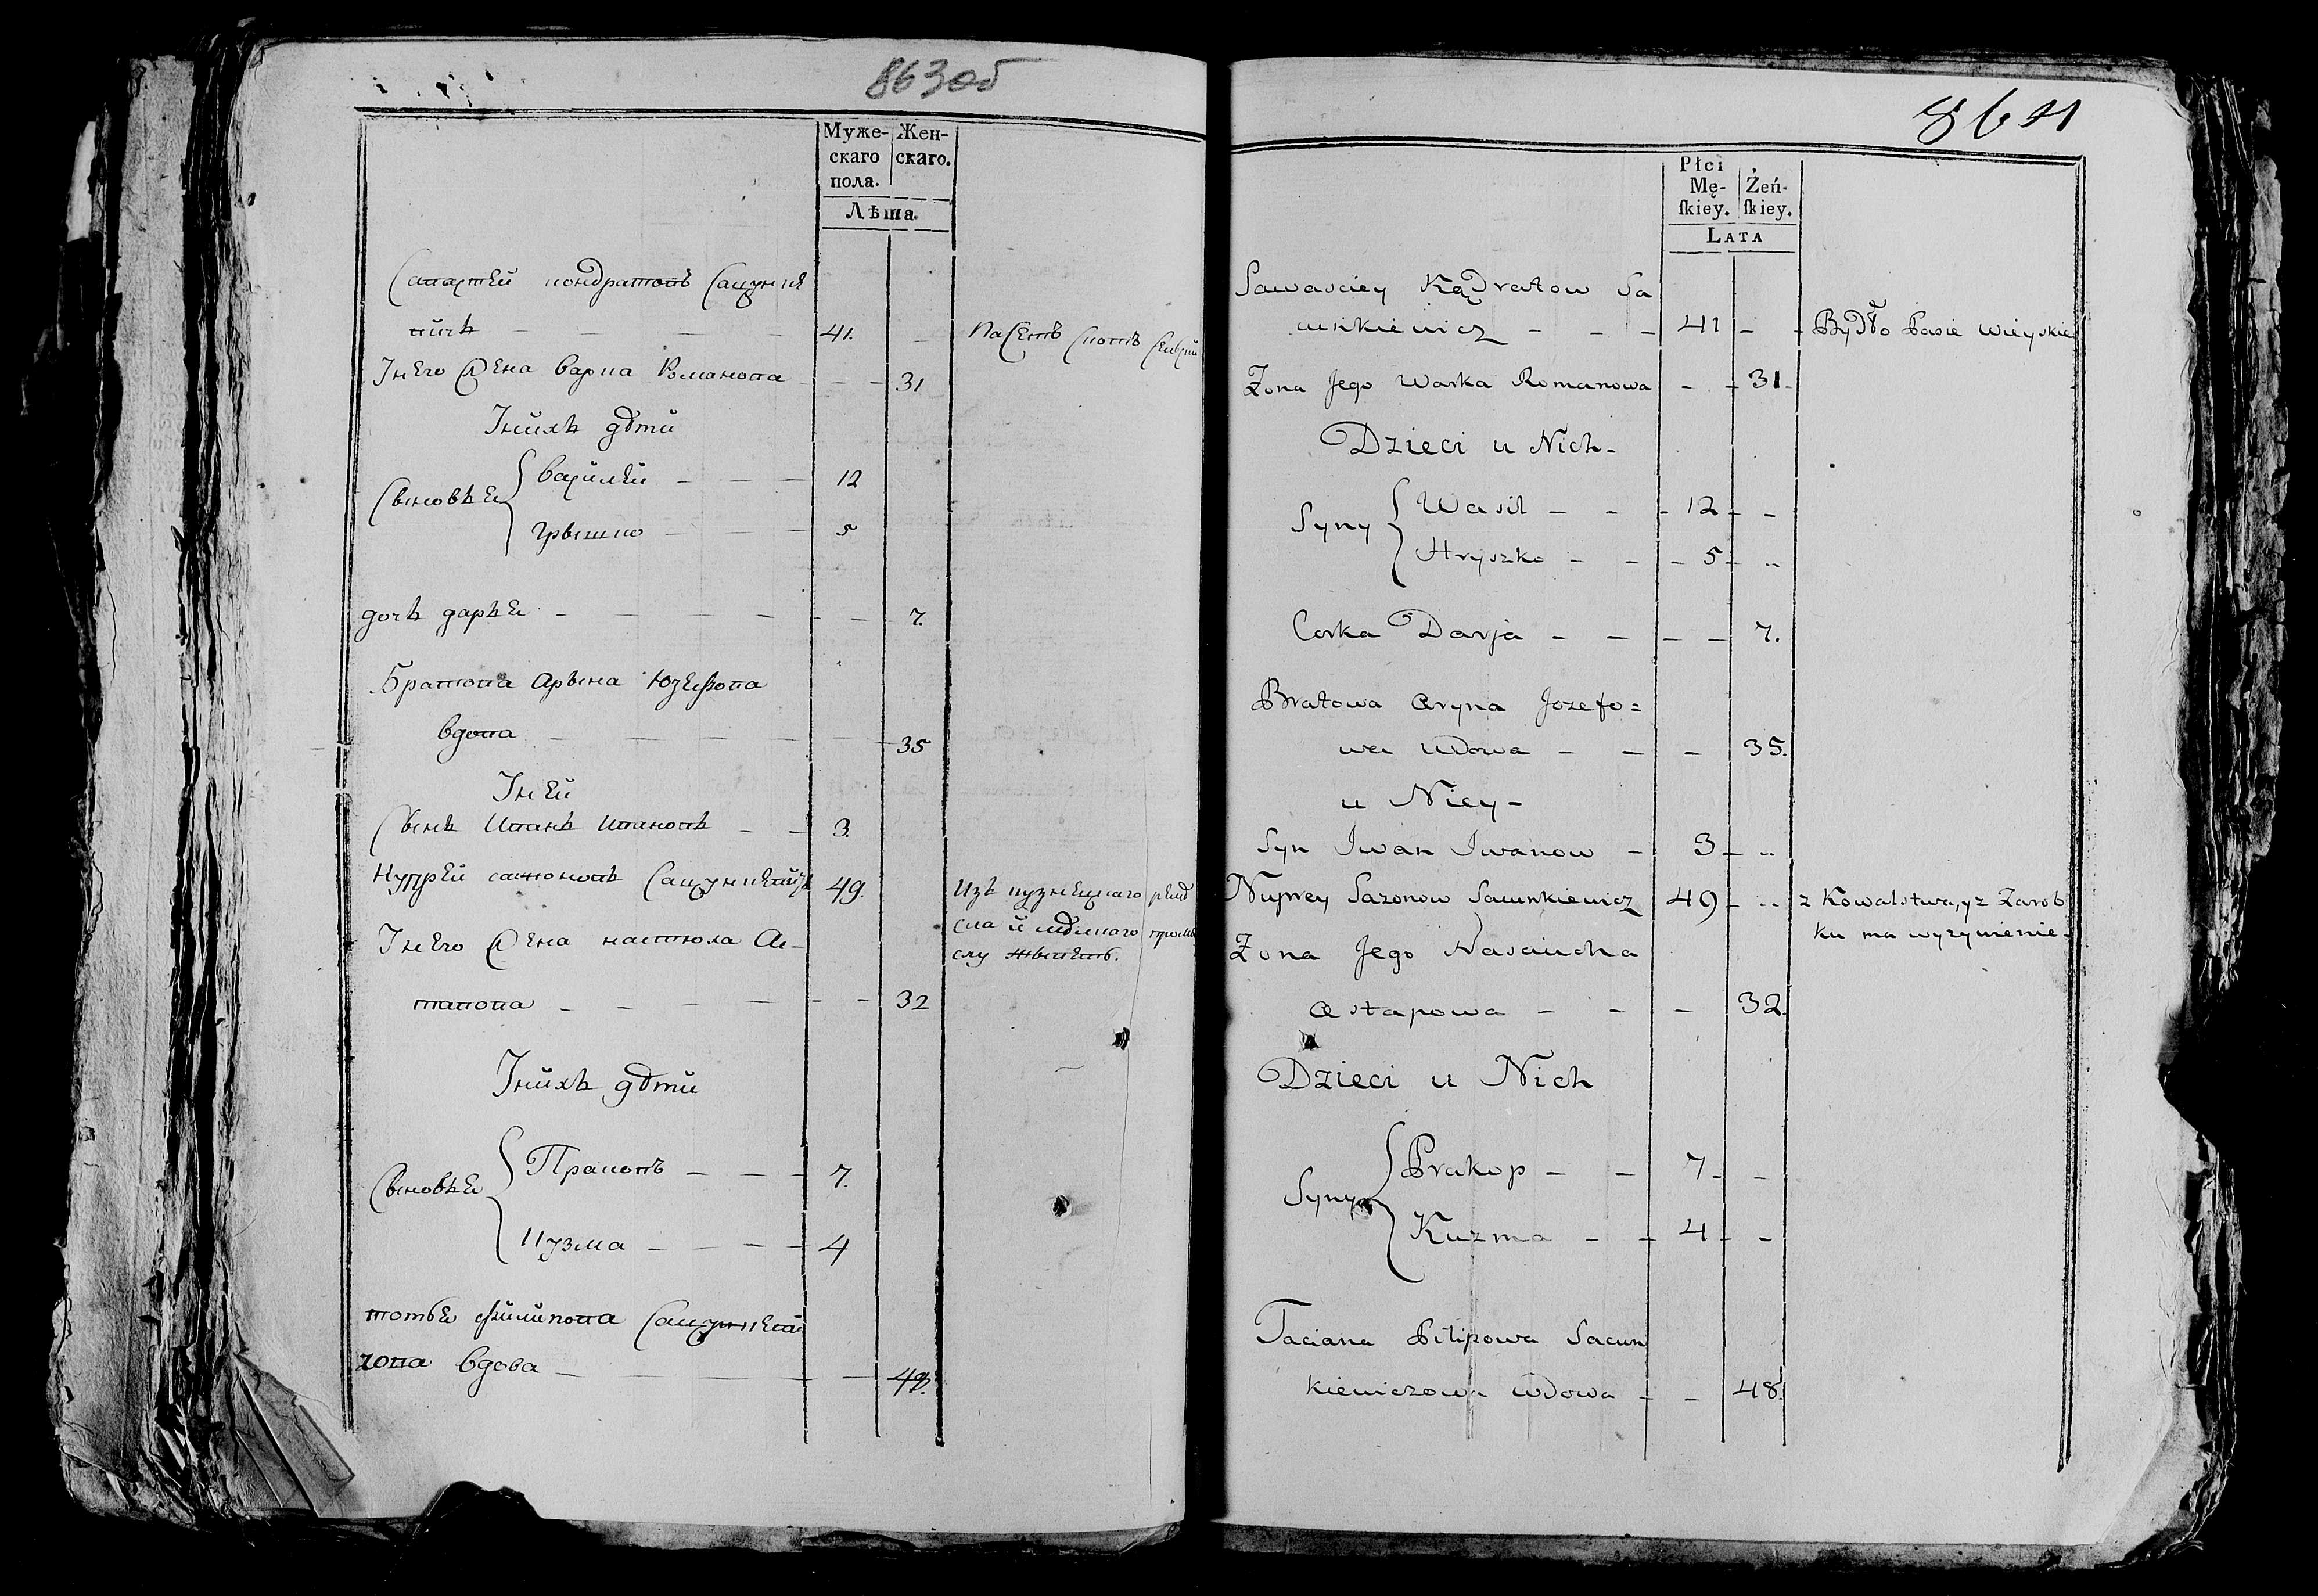 863об
Муже- Жен-
скаго скаго.
пола.
Лѣта.
Савастей кондратовъ Сацунке
вичъ — — — — 41. Пасетъ скотъ
У него жена варка Романова — — 31
У нихъ дѣти
Сыновья { василей — — — 12
грышко — — — 5
дочь дарья — — — — — — 7.
Братова Арына Юзефова
вдова — — — — — — 35
У ней
Сынъ Иванъ Ивановъ — — 3.
Нупрей сазоновъ Сацункевичъ 49. Изъ кузнецкаго реме
сла й промы
слу живетъ.
У него жена настюха Ас-
тапова — — — — — — 32
У нихъ дѣти
Сыновья { Пракопъ — — — 7.
Кузма — — — — 4
филипова Сацункеви
чова вдова — — — — — 48.
864
Płci
Mę- Żeń-
skiey. skiey.
LATA
Sawasciey Kądratow Sa
cunkiewicz — — — 41 — — Bydło Pasie wieyskie
Zona Jego Warka Romanowa — — 31 —
Dzieci u Nich —
Syny { Wasil — — — 12 — —
Hryszko — — — 5 — ..
Corka Darja — — — — 7.
Bratowa Aryna Jozefo =
wa wdowa — — — 35.
u Niey —
Syn Iwan Iwanow — 3 — ..
Nuprey Sazonow Sacunkiewicz 49 — .. z Kowalstwa, y z Zarob
ku ma wyzywienie.
Zona Jego Nasciucha
Astapowa — — — 32.
Dzieci u Nich
Syny { Prakop — — 7 — —
Kuzma — — 4 — —
Taciana Pilipowa Sacun
kiewiczowa wdowa — — 48.